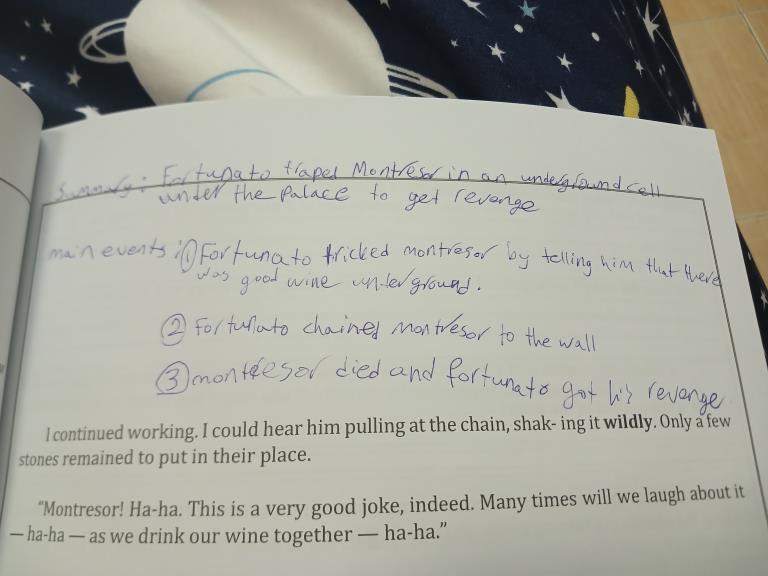 Summary: Fortunato traped Montresor in an underground cell
under the palace to get revenge
main events: ① Fortunato tricked montresor by telling him that there
was good wine underground.
② Fortunato chained montresor to the wall
③ montresor died and fortunato got his revenge
I continued working. I could hear him pulling at the chain, shak- ing it wildly. Only a few
stones remained to put in their place.
“Montresor! Ha-ha. This is a very good joke, indeed. Many times will we laugh about it
— ha-ha — as we drink our wine together — ha-ha.”